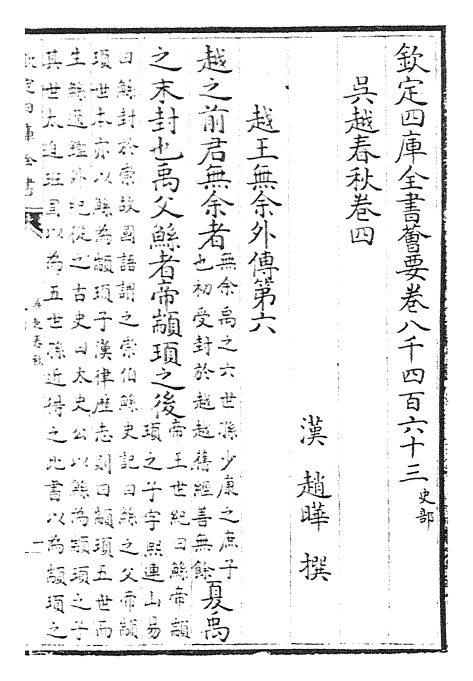 欽定四庫全書薈要卷八千四百六十三 史部
吳越春秋卷四
漢 趙曄 撰
越王無余外傳第六
越之前君無余者 無余禹之六世孫少康之庶子
也初受封於越越舊經善無餘 夏禹
之末封也禹父鯀者帝顓頊之後 帝王世紀曰鯀帝顓
頊之子字熙連山易
曰鯀封於崇故國語謂之崇伯鯀史記曰鯀之父帝顓
頊世本亦以鯀為顓頊子漢律厯志則曰顓頊五世而
生鯀通鑑外紀從之古史曰太史公以鯀為顓頊之子
其世太迫班固以為五世孫近得之此書以為顓頊之
欽定四庫全書
吳越春秋
一